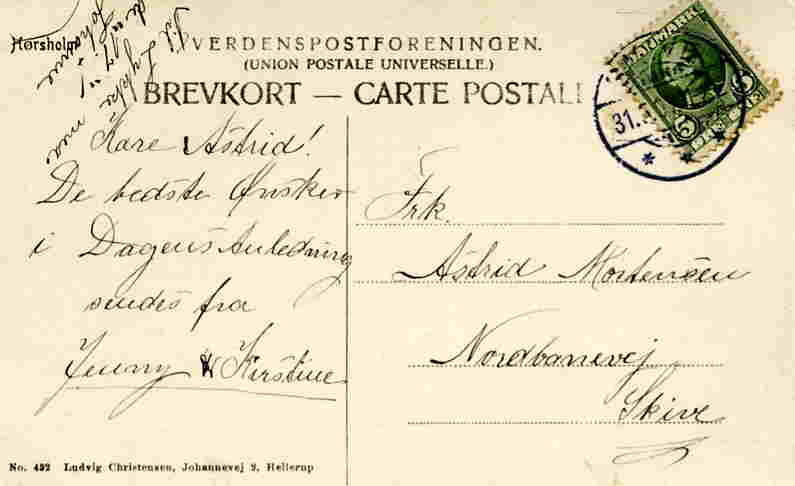 Hørsholm
VERDENSPOSTFORENINGEN.
(UNION POSTALE UNIVERSELLE.)
BREVKORT — CARTE POSTALE
DANMARK
5 5
31.
Kære Astrid!
De bedste Ønsker
i Dagens Anledning
sendes fra
Jenny & Kirstine
Frk.
Astrid Mortensen
Nordbanevej
Skive
Til Lykke
No. 492 Ludvig Christensen, Johannevej 2, Hellerup